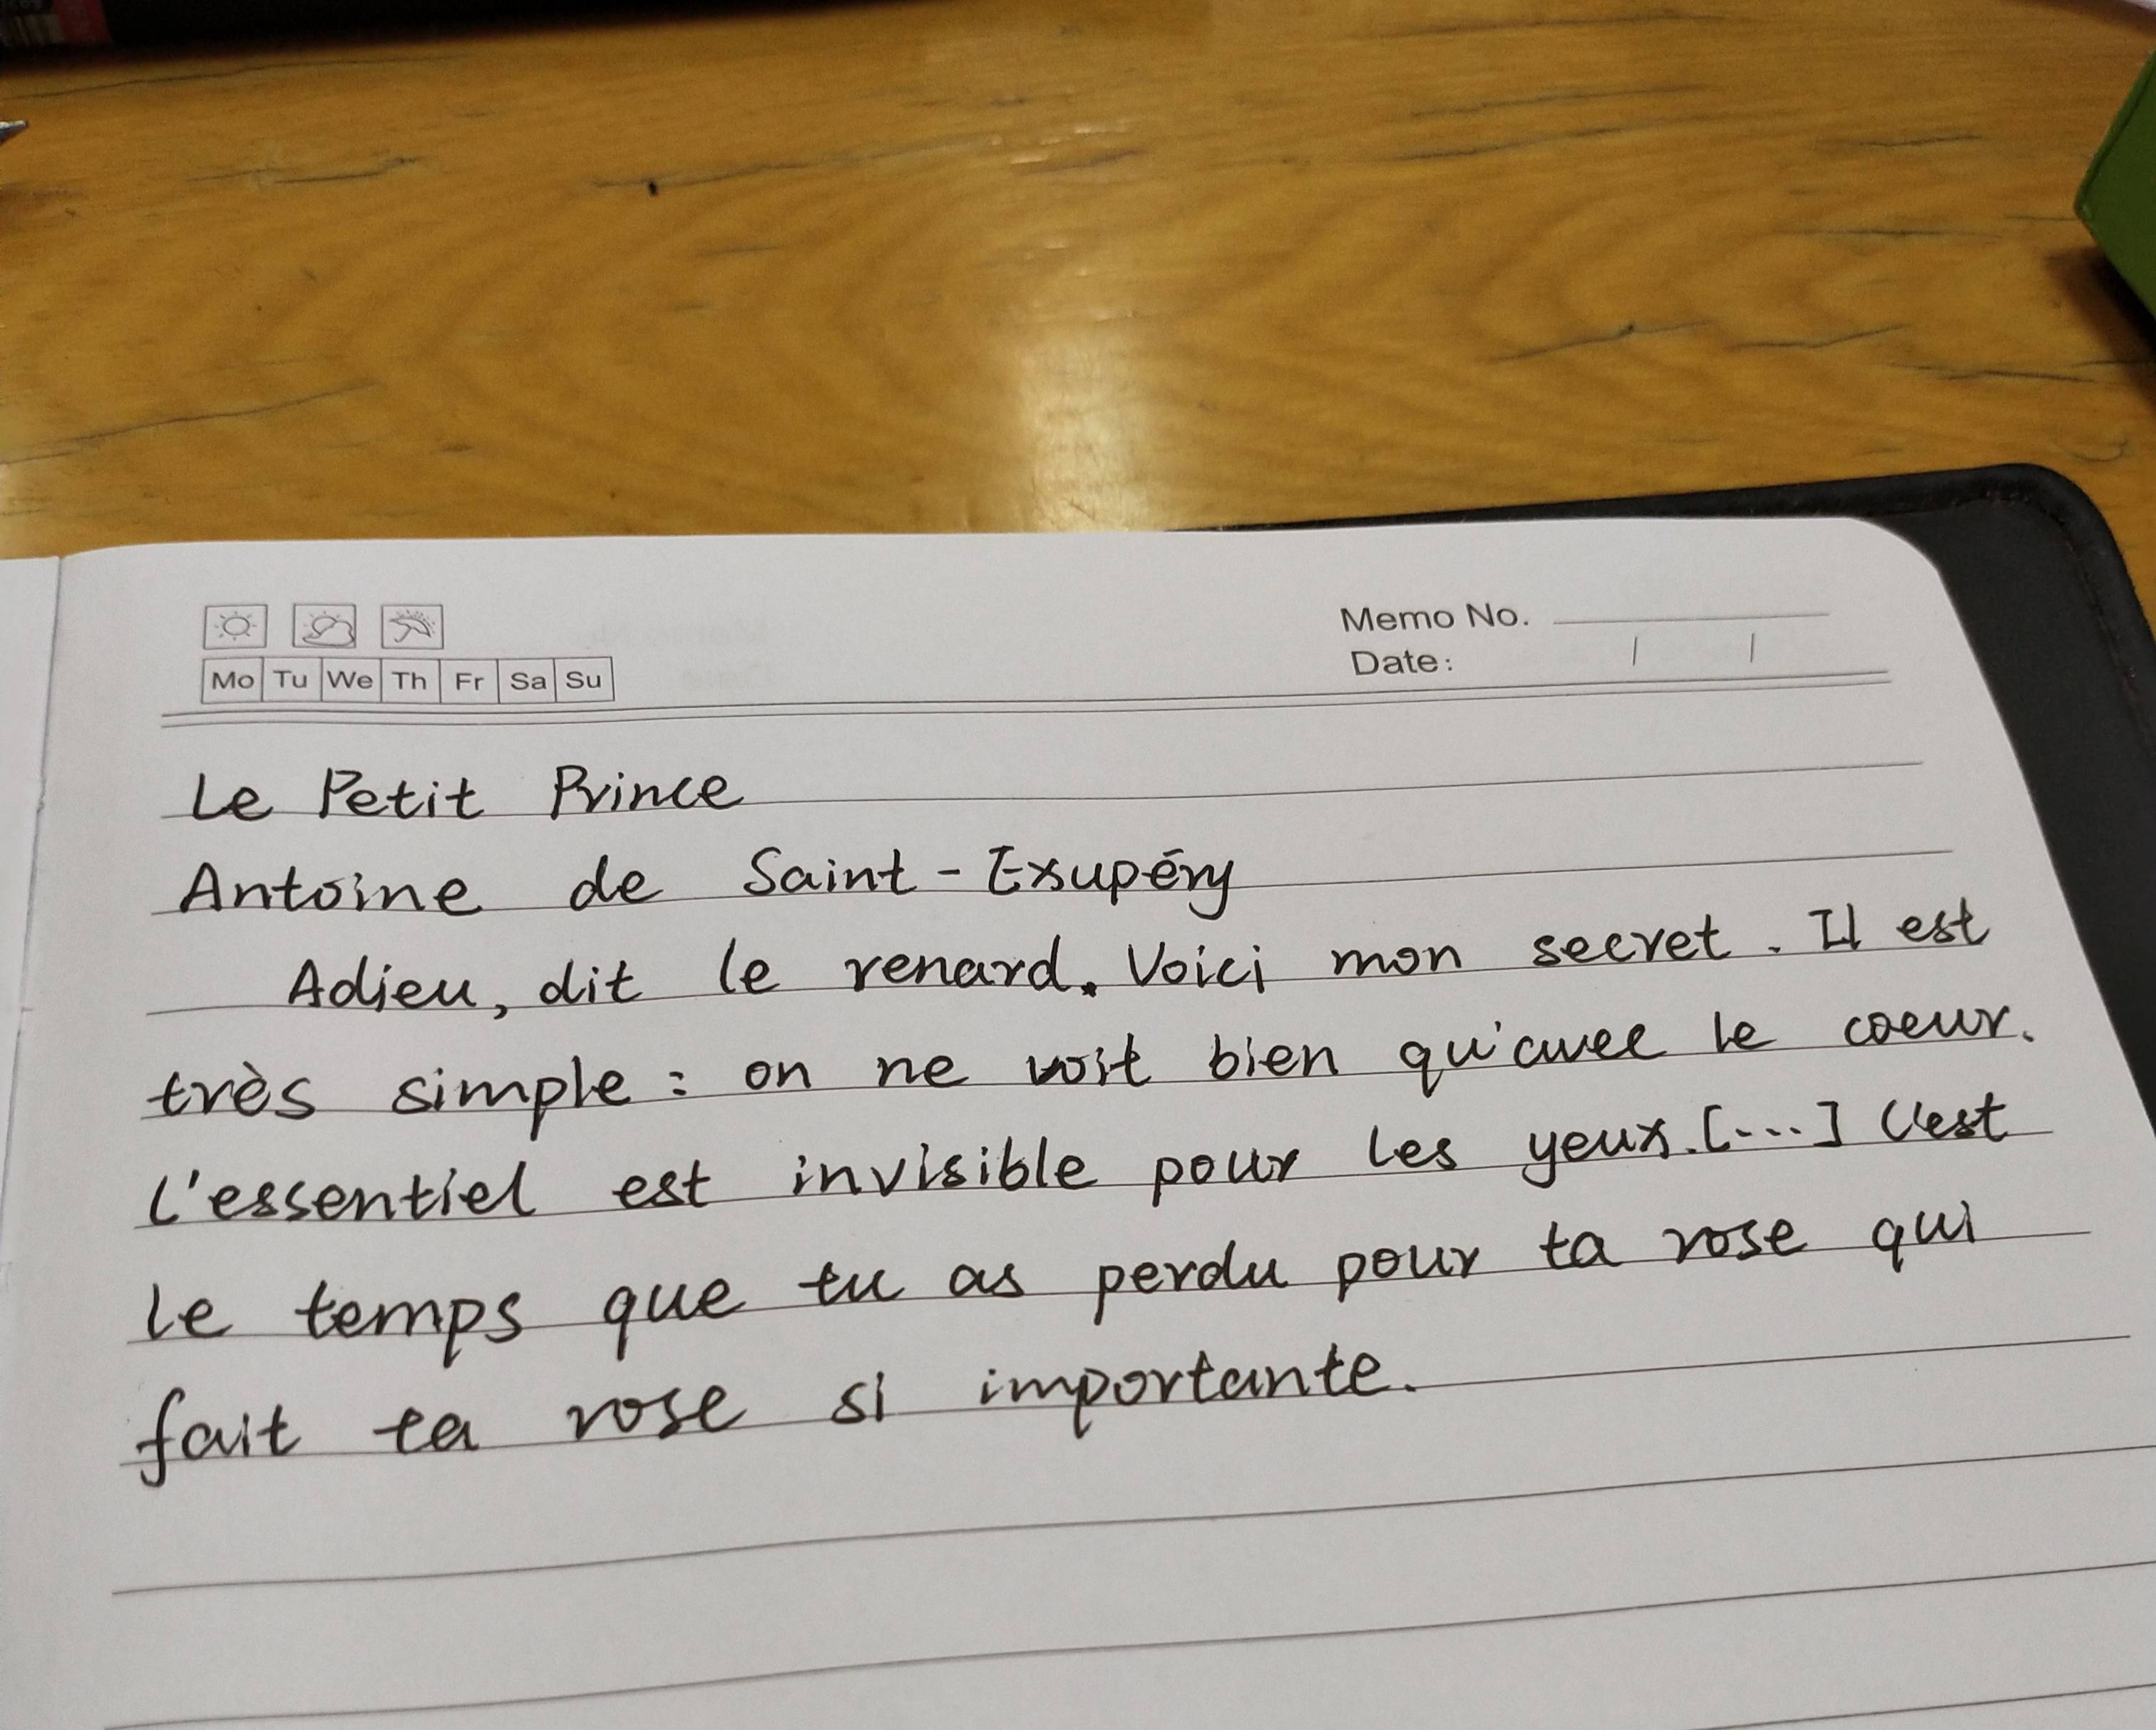 Memo No.
Date: / /
Mo Tu We Th Fr Sa Su
Le Petit Prince
Antoine de Saint-Exupéry
Adieu, dit le renard. Voici mon secret. Il est
très simple : on ne voit bien qu'avec le coeur.
L'essentiel est invisible pour les yeux. [...] C'est
le temps que tu as perdu pour ta rose qui
fait ta rose si importante.